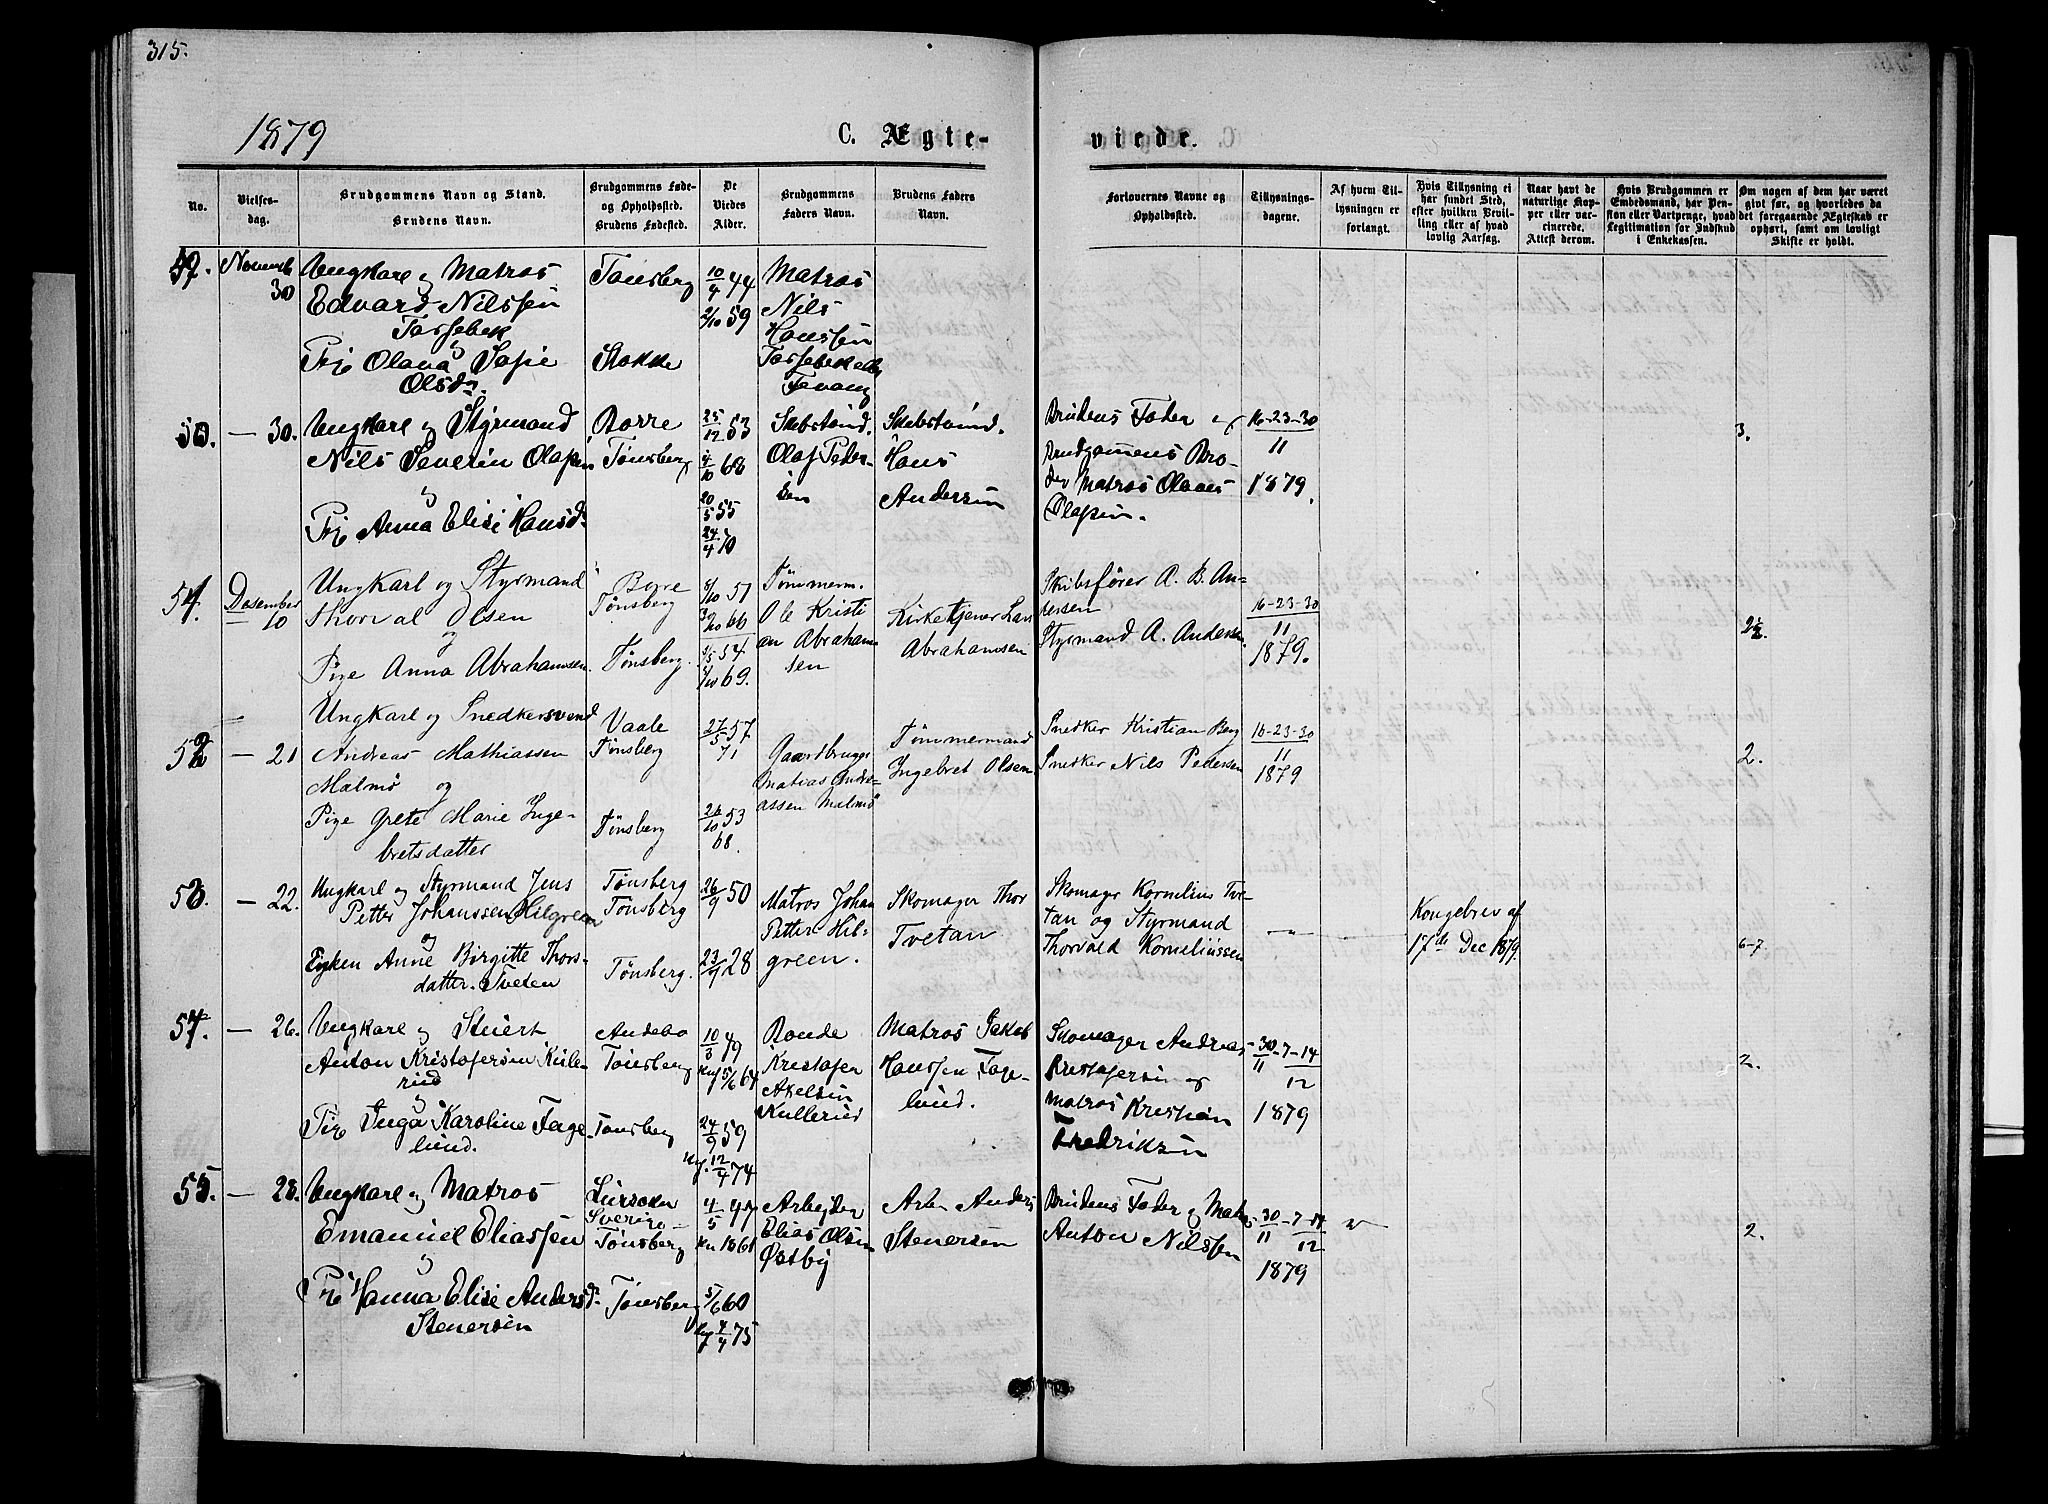 315.
1879
C. Ægte-
viede.
No.
Vielses-
dag.
Brudgommens Navn og Stand.
Brudens Navn.
Brudgommens Føde-
og Opholdssted.
Brudens Fødested.
De
Viedes
Alder.
Brudgommens
Faders Navn.
Brudens Faders
Navn.
Forlovernes Navne og
Opholdssted.
Tillysnings-
dagene.
Af hvem Til-
lysningen er
forlangt.
Hvis Tillysning ei
har fundet Sted,
efter hvilken Bevil-
ling eller af hvad
lovlig Aarsag.
Naar havt de
naturlige Kop-
per eller vac-
cinerede.
Attest derom.
Hvis Brudgommen er
Embedsmand, har Pen-
sion eller Vartpenge, hvad
Legitimation for Indskud
i Enkekassen.
Om nogen af dem har været
givt før, og hvorledes da
det foregaaende Ægteskab er
ophørt, samt om lovligt
Skifte er holdt.
30
Ungkarl og Matros
Edvard Nilssen
og
Pige Olava Sofie
Olsdr.
Tønsberg
Stokke
10/4 44
2/10 59
Matros
Nils
Hanssen
50. — 30.
Ungkarl og Styrmand
Nils Severin Olafsen
og
Pige Anna Elise Hansd.
Borre
Tønsberg
25/12 53
4/10 68
20/5 55
24/4 70
Skibstømd.
Olaf Peder-
sen
Skibstømd.
Hans
Andersen
Brudens Fader og
Brudgommens Bro-
der Matros Olaves
Olafsen.
16-23-30
11
1879.
3.
51. Desember
10
Ungkarl og Styrmand
Thorval Olsen
og
Pige Anna Abrahamsen.
Borre
Tønsberg
Tønsberg.
8/10 51
3/10 66
3/5 54
9/10 69.
Tømmerm.
Ole Kristi
an Abraham
sen
Kirketjener Lars
Abrahamsen
Skibsfører A. B. An-
dersen
Styrmand A. Andersen.
16-23-30
11
1879.
2.
52 — 21
Ungkarl og Snedkersvend
Andreas Mathiassen
Malmø og
Pige Grete Marie Inge-
bretsdatter
Vaale
Tønsberg
Tønsberg
27/5 57
71
26/10 53
68.
Gaardbruger
Matias Andre-
assen Malmø
Tømmermand
Ingebret Olsen
Snedker Kristian Berg
Snedker Nils Pedersen
16-23-30
11
1879
2.
53. — 22.
Ungkarl og Styrmand Jens
Petter Johanssen Hilgreen
og
Enken Anne Birgitte Thors-
datter. Tveten
Tønsberg
Tønsberg
Tønsberg.
26/9 50
23/9 28
Matros Johan
Petter Hil-
green.
Skomager Thor
Tvetan
Skomager Kornelius Tve-
tan og Styrmand
Thorvald Korneliussen
Kongebrev af
17de Dec 1879.
6-7.
54. — 26.
Ungkarl og Stuert
Anton Kristofersen Kule-
rud
og
Pige Inga Karoline Fage-
lund.
Andebo
Tønsberg
Tønsberg
10/3 49
5/6 64
24/9 59
12/4 74
Bonde
Kristofer
Akelsen
Kullerud
Matros Jakob
Hanssen Fage-
lund.
Skomager Andreas
Kristofersen og
Matros Kristian
Fredriksen
30/11-7-14
12
1879
2.
55. — 28.
Ungkarl og Matros
Emanuel Eliassen
og
Pige Hanna Elise Andersd.
Stenersen
Sverige
Tønsberg
Tønsberg
4/5 47
5/6 60
4/4 75
Arbejder
Elias Olsen
Østby
Arb. Anders
Stenersen
Brudens Fader og Matros
Anton Nilssen
30/11-7-14
12
1879
2.